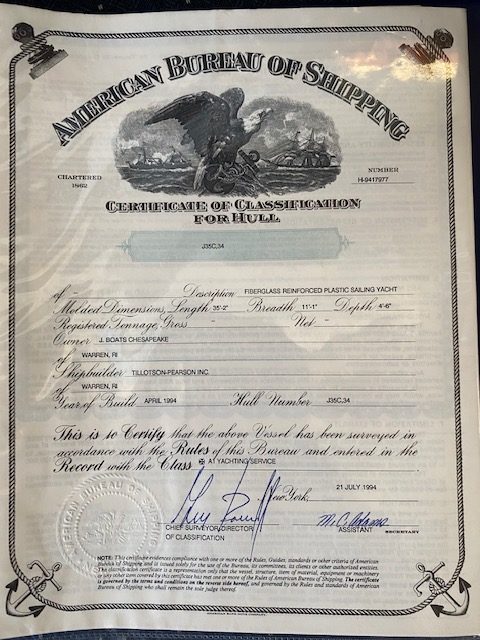 AMERICAN BUREAU OF SHIPPING
CHARTERED
1862
NUMBER
H-9417977
CERTIFICATE OF CLASSIFICATION
FOR HULL
J35C,34
of - Description FIBERGLASS REINFORCED PLASTIC SAILING YACHT
Molded Dimensions, Length 35'-2" Breadth 11'-1" Depth 4'-6"
Registered Tonnage, Gross - Net -
Owner J. BOATS CHESAPEAKE
of WARREN, RI
Shipbuilder TILLOTSON-PEARSON INC.
of WARREN, RI
Year of Build APRIL 1994 Hull Number J35C,34
This is to Certify that the above Vessel has been surveyed in
accordance with the Rules of this Bureau and entered in the
Record with the Class ✠ A1 YACHTING SERVICE
New York, 21 JULY 1994
CHIEF SURVEYOR/DIRECTOR
OF CLASSIFICATION
ASSISTANT SECRETARY
AMERICAN BUREAU OF
NOTE: This certificate evidences compliance with one or more of the Rules, Guides, standards or other criteria of American
Bureau of Shipping and is issued solely for the use of the Bureau, its committees, its clients or other authorized entities.
The classification certificate is a representation only that the vessel, structure, item of material, equipment or machinery
or any other item covered by this certificate has met one or more of the Rules of American Bureau of Shipping. The certificate
is governed by the terms and conditions on the reverse side hereof, and governed by the Rules and standards of American
Bureau of Shipping who shall remain the sole judge thereof.